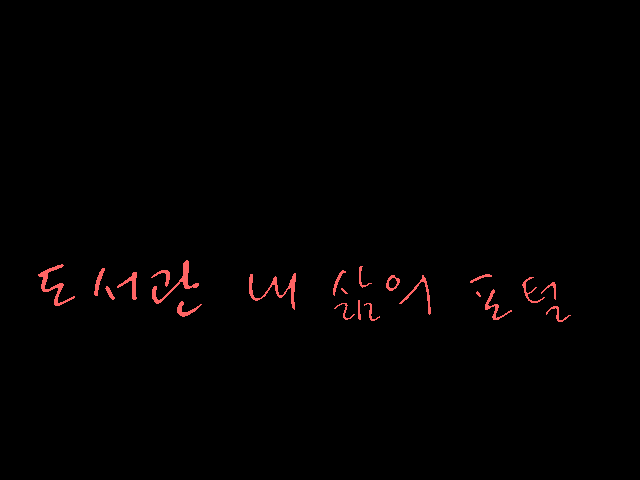 도서관 내 삶의 포털